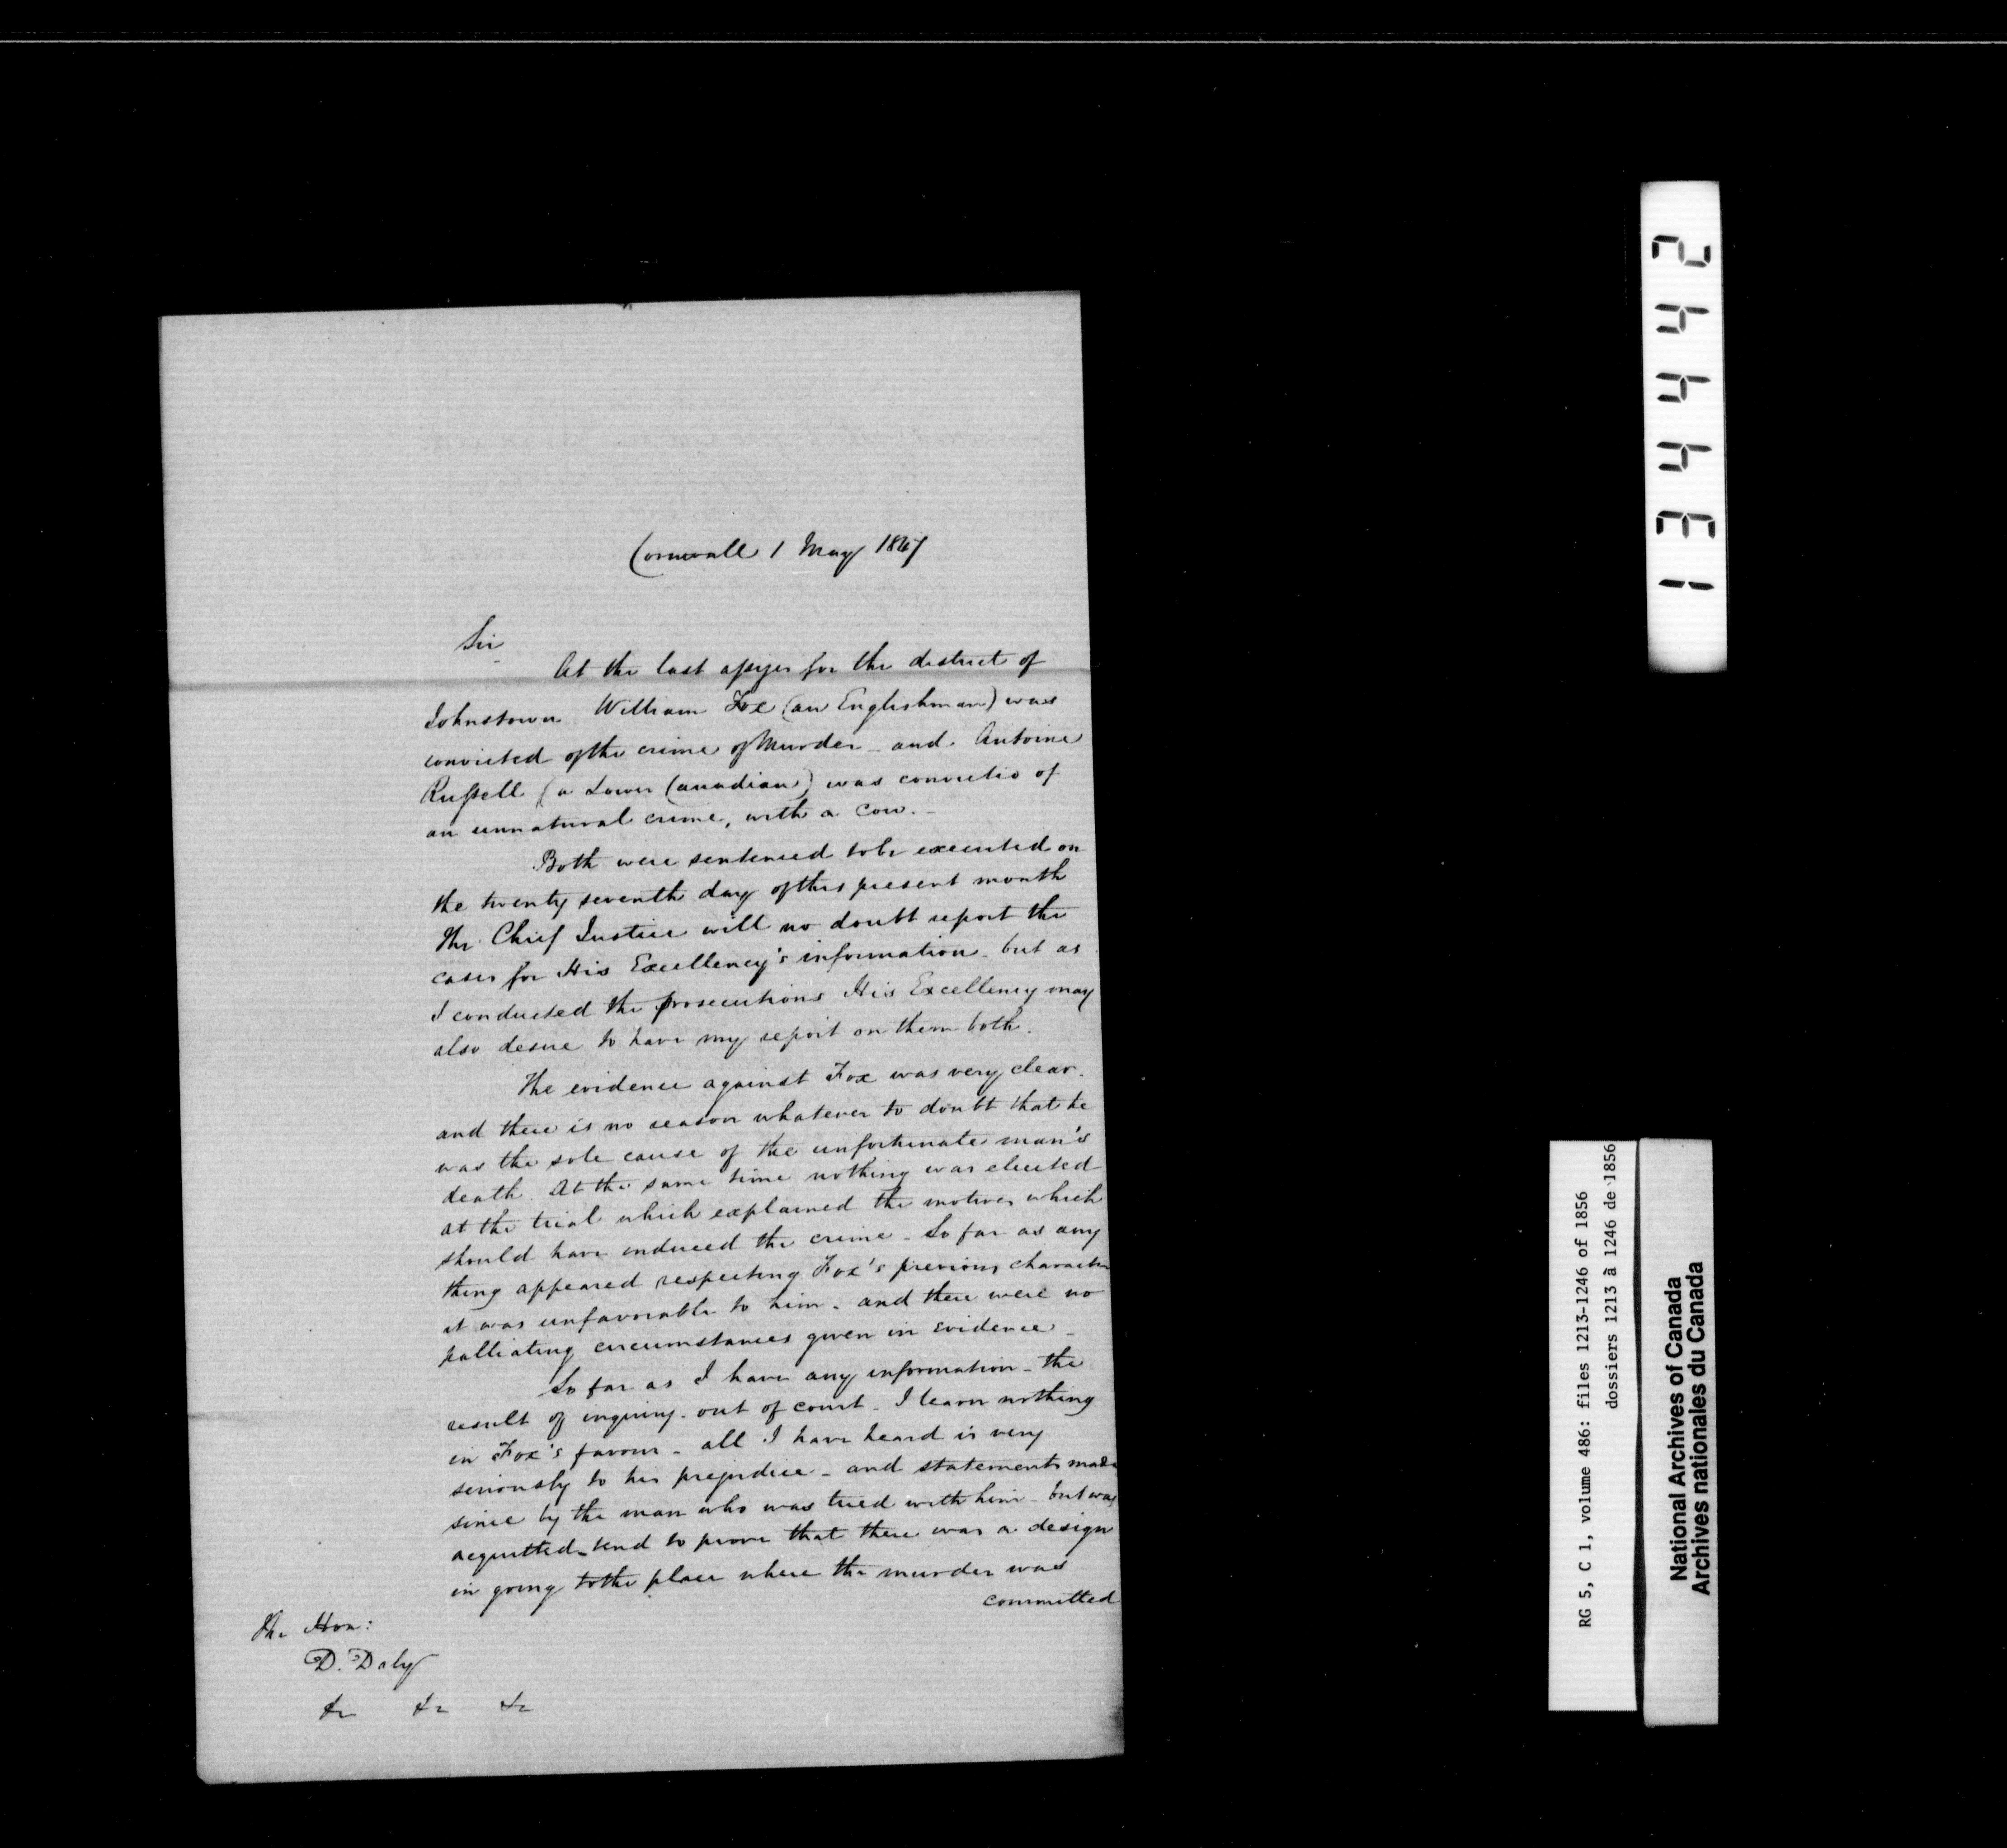 Cornwall 1 May 1847
Sir
At the last assizes for the district of
Johnstown William Fox (an Englishman) was
convicted of the crime of Murder - and Antoine
Russell (a Lower Canadian) was convicted of
an unnatural crime, with a cow. -
Both were sentenced to be executed on
the twenty seventh day of this present month
The Chief Justice will no doubt report the
cases for His Excellency's information - but as
I conducted the prosecutions His Excellency may
also desire to have my report on them both.
The evidence against Fox was very clear.
and there is no reason whatever to doubt that he
was the sole cause of the unfortunate man's
death. At the same time nothing was elicited
at the trial which explained the motives which
should have induced the crime - So far as any
thing appeared respecting Fox's previous character
it was unfavorable to him - and there were no
palliating circumstances given in evidence -
So far as I have any information - the
result of inquiry - out of court - I learn nothing
in Fox's favour - all I have heard is very
seriously to his prejudice - and statements made
since by the man who was tried with him - but was
acquitted - tend to prove that there was a design
in going to the place where the murder was
committed
The Hon:
D. Daly
&c &c &c
134442
RG 5, C 1, volume 486: files 1213-1246 of 1856
dossiers 1213 à 1246 de 1856
National Archives of Canada
Archives nationales du Canada